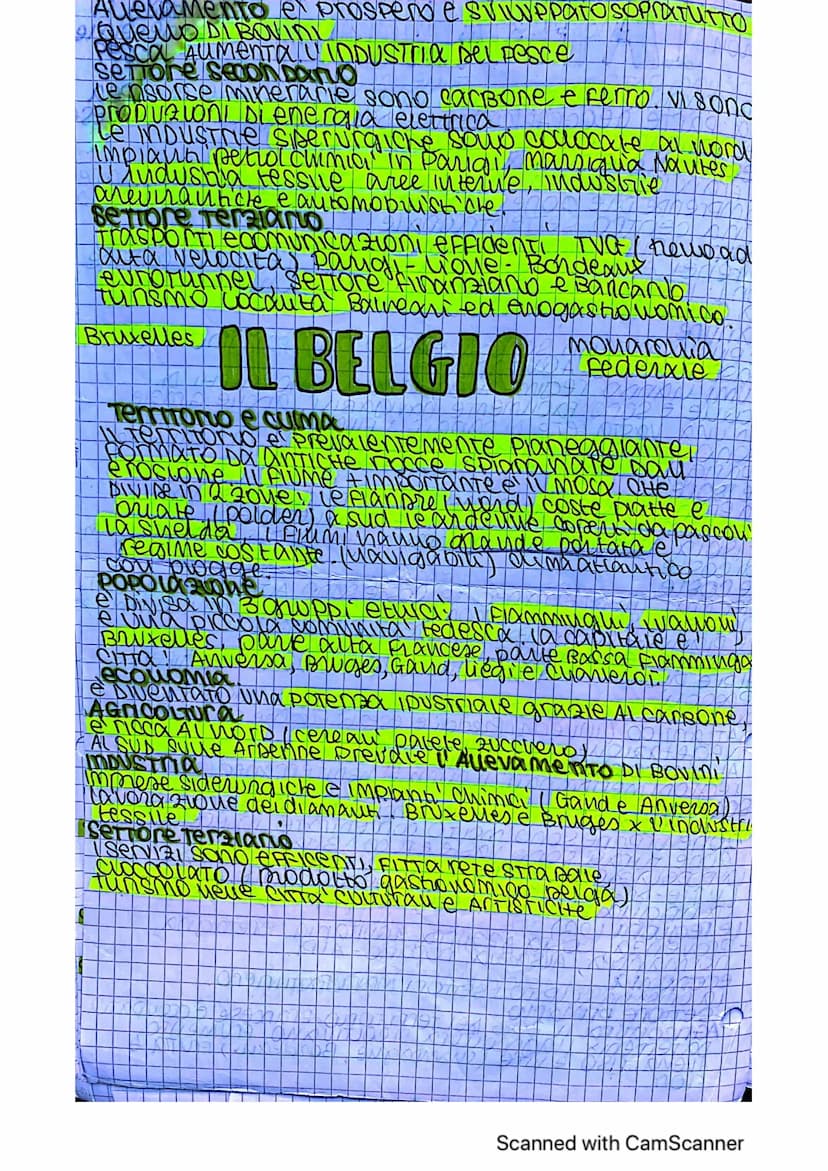 Allevamento e' prospero e sviluppato sopratutto
quello di bovini
Pesca aumenta l'industria del pesce
settore secondario
le risorse minerarie sono carbone e ferro. vi sono
produzioni di energia elettrica
Le industrie siderurgiche sono collocate al nord
impianti petrolchimici in Parigi, Marsiglia, Nantes
L'industria tessile aree interne, industrie
areunautiche e automobilistiche.
settore terziario
trasporti e comunicazioni efficienti TVG ( treno ad
alta velocità) Parigi-Lione-Bordeaux
eurotunnel, settore Finanziario e Bancario
turismo località Balneari ed enogastronomico.
Bruxelles IL BELGIO monarchia
Federale
Territorio e clima
Il territorio e' prevalentemente pianeggiante,
formato da antiche rocce spianate dall
erosione il fiume + importante e' il Mosa che
divide in 2 zone: le Fiandre (nord) coste piatte e
(polder) a sud le ardenne coperti da pascoli
la shelda, i fiumi hanno grande portata e
regime costante. (navigabili) clima atlantico
con piogge.
Popolazione
e' divisa in 3 gruppi etnici: i Fiamminghi, valloni,
e una piccola comunità tedesca. la capitale e'
Bruxelles, parte alta francese, parte Bassa Fiamminga
città: Anversa, Bruges, Gand, Liegi e
economia
e' diventato una potenza idustriale grazie al carbone,
Agricoltura
e' ricca al nord (cereali patate, zucchero)
Al sud sulle Ardenne prevale l'Allevamento di bovini
Industria
immense siderurgiche e impianti chimici ( Gand e Anversa)
lavorazione dei diamanti. Bruxelles e Bruges x l'industri
tessile
settore terziario
i servizi sono efficenti, fitta rete stradale,
cioccolato ( prodotto gastronomico belga)
turismo nelle città culturali e artistiche
Scanned with CamScanner